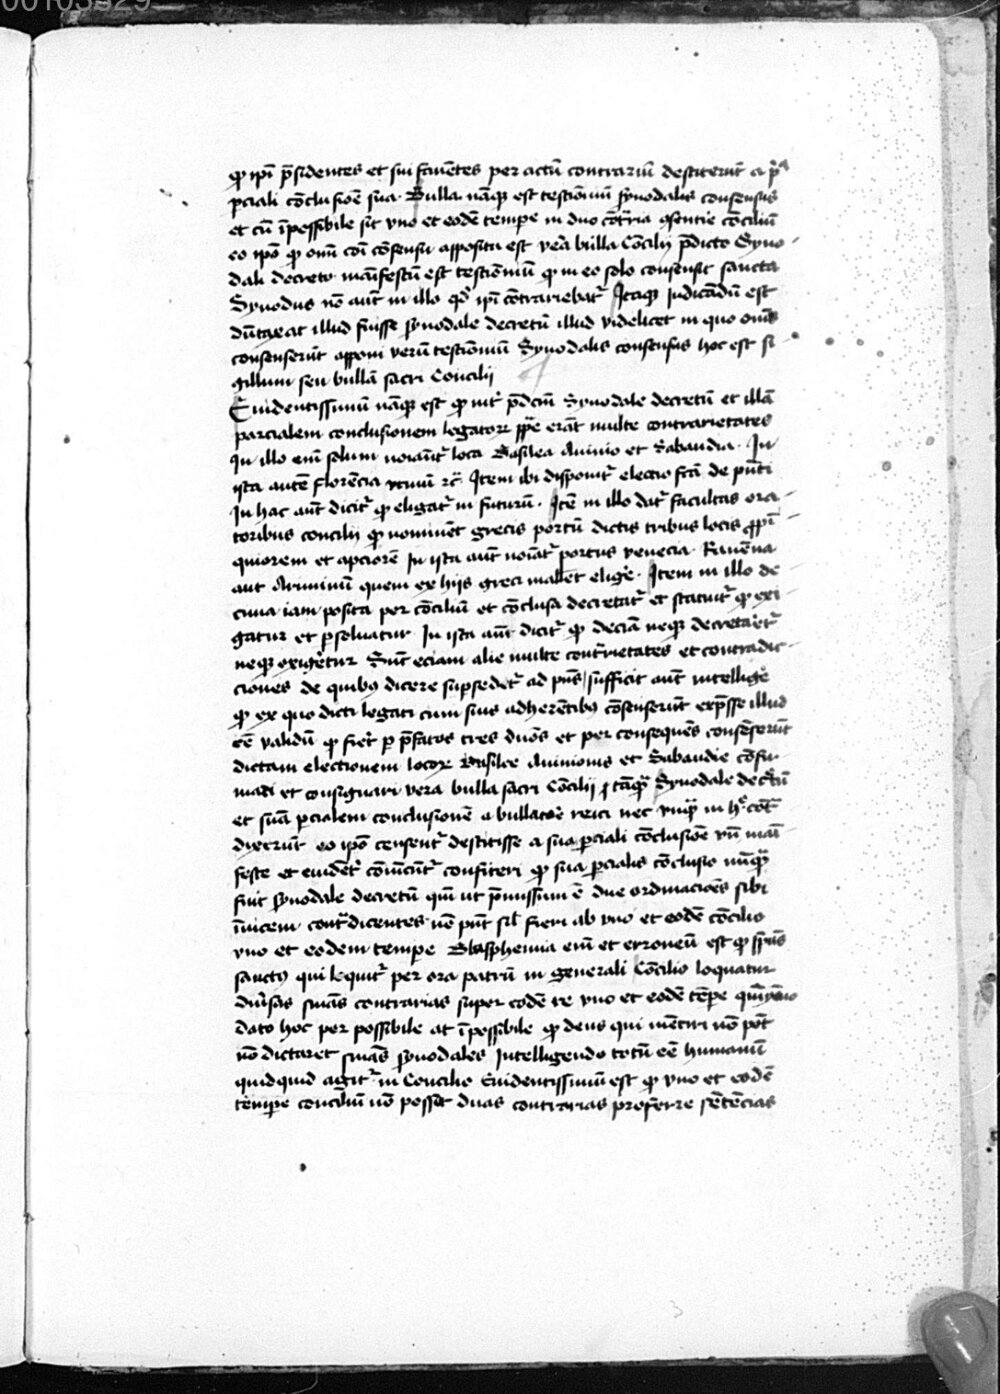 00103929
qͦ ip̄i p̄sidentes et sui fauētes per actū contrariū destiterūt a p̄
ꝑciali cōclusiōe sua. Bulla nāqꝫ est testiōniū synodalis consensus
et cū īpossibile sit vno et eodē tempe in duo cōtͣria ꝯsentire cōciliū
eo ipō qͦ om̄i cōi cōsensu apposita est vera bulla Cōcilij p̄dicto Syno-
dali decreto manifestū est testiōniū qͦ in eo solo consensit sancta
Synodus nō aūt in illo qd̓ ip̄i cōtrariebāt᷑ Itaqꝫ iudicādū est
dūtaxat illud fuisse synodale decretū illud videlicet in quo om̄s
consenserūt apponi verum testiōniū Synodalis consensus hoc est si
gillum seu bullā sacri Concilij
Euidentissimū nāqꝫ est qͦ int᷑ p̄dcm̄ Synodale decretū et illā
parcialem conclusionem legatoꝝ erāt multe contrarietates
In illo em̄ solum noīant᷑ loca Basilea Auinio et Sabaudia. In
ista autē Florēcia vtinū ꝛc̄ Item ibi disponit᷑ electio fcā de p̄nti
In hac aūt dicit᷑ qͦ eligat᷑ in futurū. Itē in illo dat᷑ facultas ora-
toribus concilij qͦ nominēt grecis portū dictis tribus locis ꝓpī
quiorem et apciorē In ista aūt noīat᷑ portus venecia. Rauēna
aut Ariminū quem ex hijs greci mallēt eligē. Item in illo de-
cima iam posita per cōciliū et cōclusa decretat᷑ et statuit᷑ qͦ exi-
gatur et ꝑsoluatur In ista aūt dicit᷑ qͦ decia neqꝫ decretaret᷑
neqꝫ exigētur Sūt eciam alie multe contrietates et contradic-
ciones de quibꝰ dicere supsedet᷑ ad p̄ns sufficit aūt intelligē
qͦ ex quo dicti legati cum suis adherētibꝰ cōsenserūt exp̄sse illud
eē validū qͦ fiet ꝑ p̄fatos tres dn̄os et per consequēs consēserūt
dictam electionem locoꝝ Basilee Auinionis et Sabaudie cōfir-
mari et consignari vera bulla sacri Cōcilij tāqꝫ Synodale decretū
et suā ꝑcialem conclusionē a bullatoē reici nec vnqꝫ in
dixerūt eo ipō censent᷑ destitisse a sua ꝑciali cōclusiōe vn̄ maī-
feste et euidēt᷑ cōuincūt᷑ confiteri qͦ sua ꝑcialis cōclusio nūqꝫ
fuit synodale decretū qm̄ ut p̄missum ē due ordinacōes sibi
īuicem contͣdicentes nō p̄nt sil̓ fieri ab vno et eodē cōcilio
vno et eodem tempe Blasphemia em̄ et erroneū est qͦ sp̄us
sanctꝰ qui loquit᷑ per ora patrū in generali Cōcilio loquatur
diūsas sm̄as contrarias super eodē re vno et eodē tēpe
dato hoc per possibile at īpossibile qͦ deus qui mētiri nō pōt
nō dictaret sm̄as synodales Intelligendo totū eē humanū
quidquid agit᷑ in Concilio Euidentissimū est qͦ vno et eodē
tempe conciliū nō posset duas contrarias proferre sētēcias